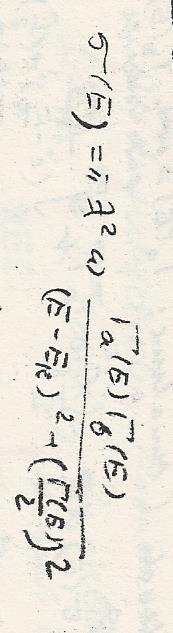 σ(E) = π ƛ² ω Γa(E) Γb(E) / ((E - ER)² + (Γ(E)/2)²)